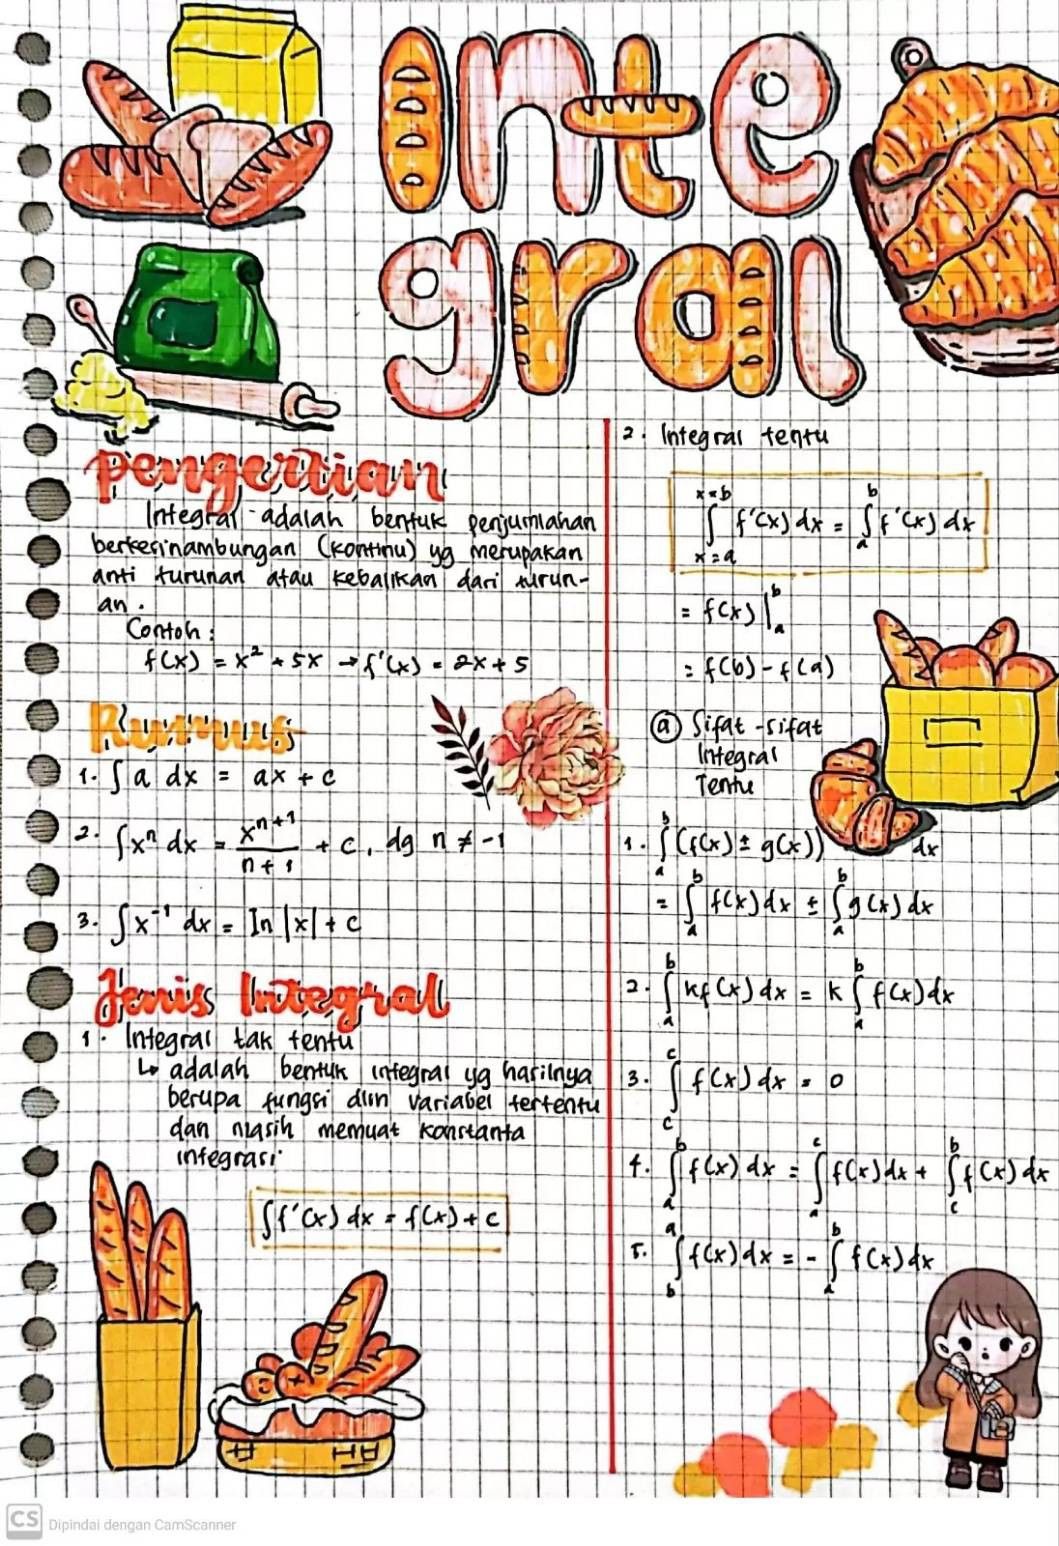 Integral
Pengertian
Integral adalah bentuk penjumlahan
berkesinambungan (kontinu) yg merupakan
anti turunan atau kebalikan dari turun-
an.
Contoh:
f(x) = x² + 5x → f'(x) = 2x + 5
Rumus
1. ∫ a dx = ax + c
2. ∫ xⁿ dx = xⁿ⁺¹/n+1 + c, dg n ≠ -1
3. ∫ x⁻¹ dx = In |x| + c
Jenis Integral
1. Integral tak tentu
↳ adalah bentuk integral yg hasilnya
berupa fungsi dlm variabel tertentu
dan masih memuat konstanta
integrasi
∫ f'(x) dx = f(x) + c
2. Integral tentu
∫ₓ₌ₐˣ⁼ᵇ f'(x) dx = ∫ₐᵇ f'(x) dx
= f(x) |ₐᵇ
= f(b) - f(a)
ⓐ Sifat-sifat
Integral
Tentu
1. ∫ₐᵇ (f(x) ± g(x)) dx
= ∫ₐᵇ f(x) dx ± ∫ₐᵇ g(x) dx
2. ∫ₐᵇ kf(x) dx = k ∫ₐᵇ f(x) dx
3. ∫_c^c f(x) dx = 0
4. ∫_a^b f(x) dx = ∫_a^c f(x) dx + ∫_c^b f(x) dx
5. ∫_b^a f(x) dx = - ∫_a^b f(x) dx
CS Dipindai dengan CamScanner